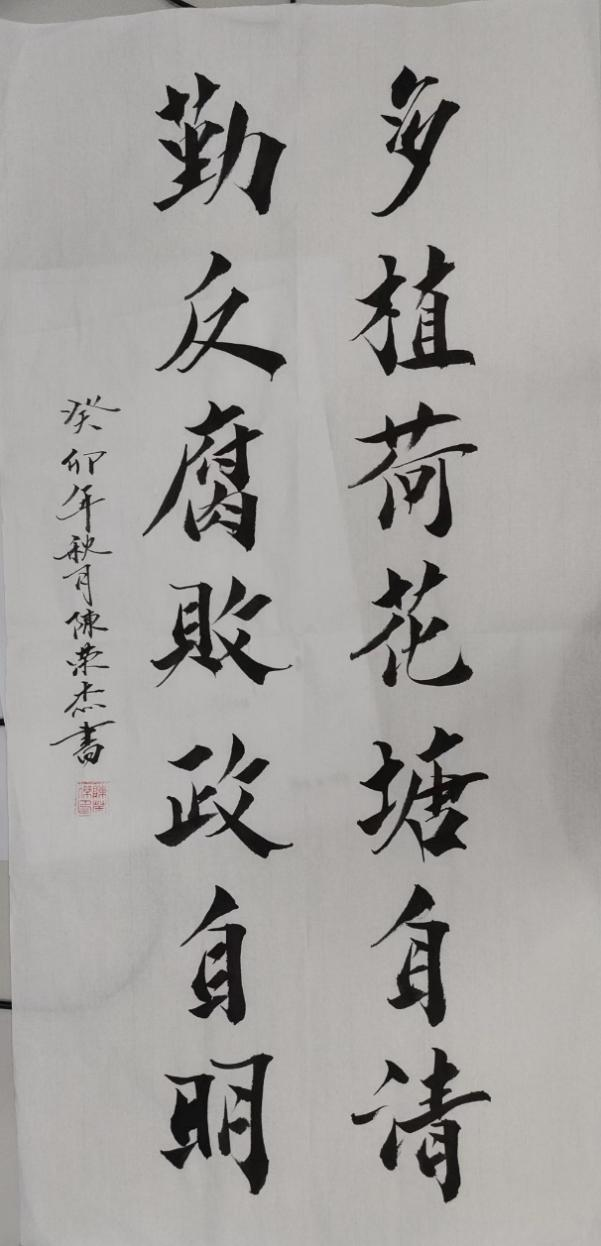 多植荷花塘自清
勤反腐败政自明
癸卯年秋月陳荣杰書